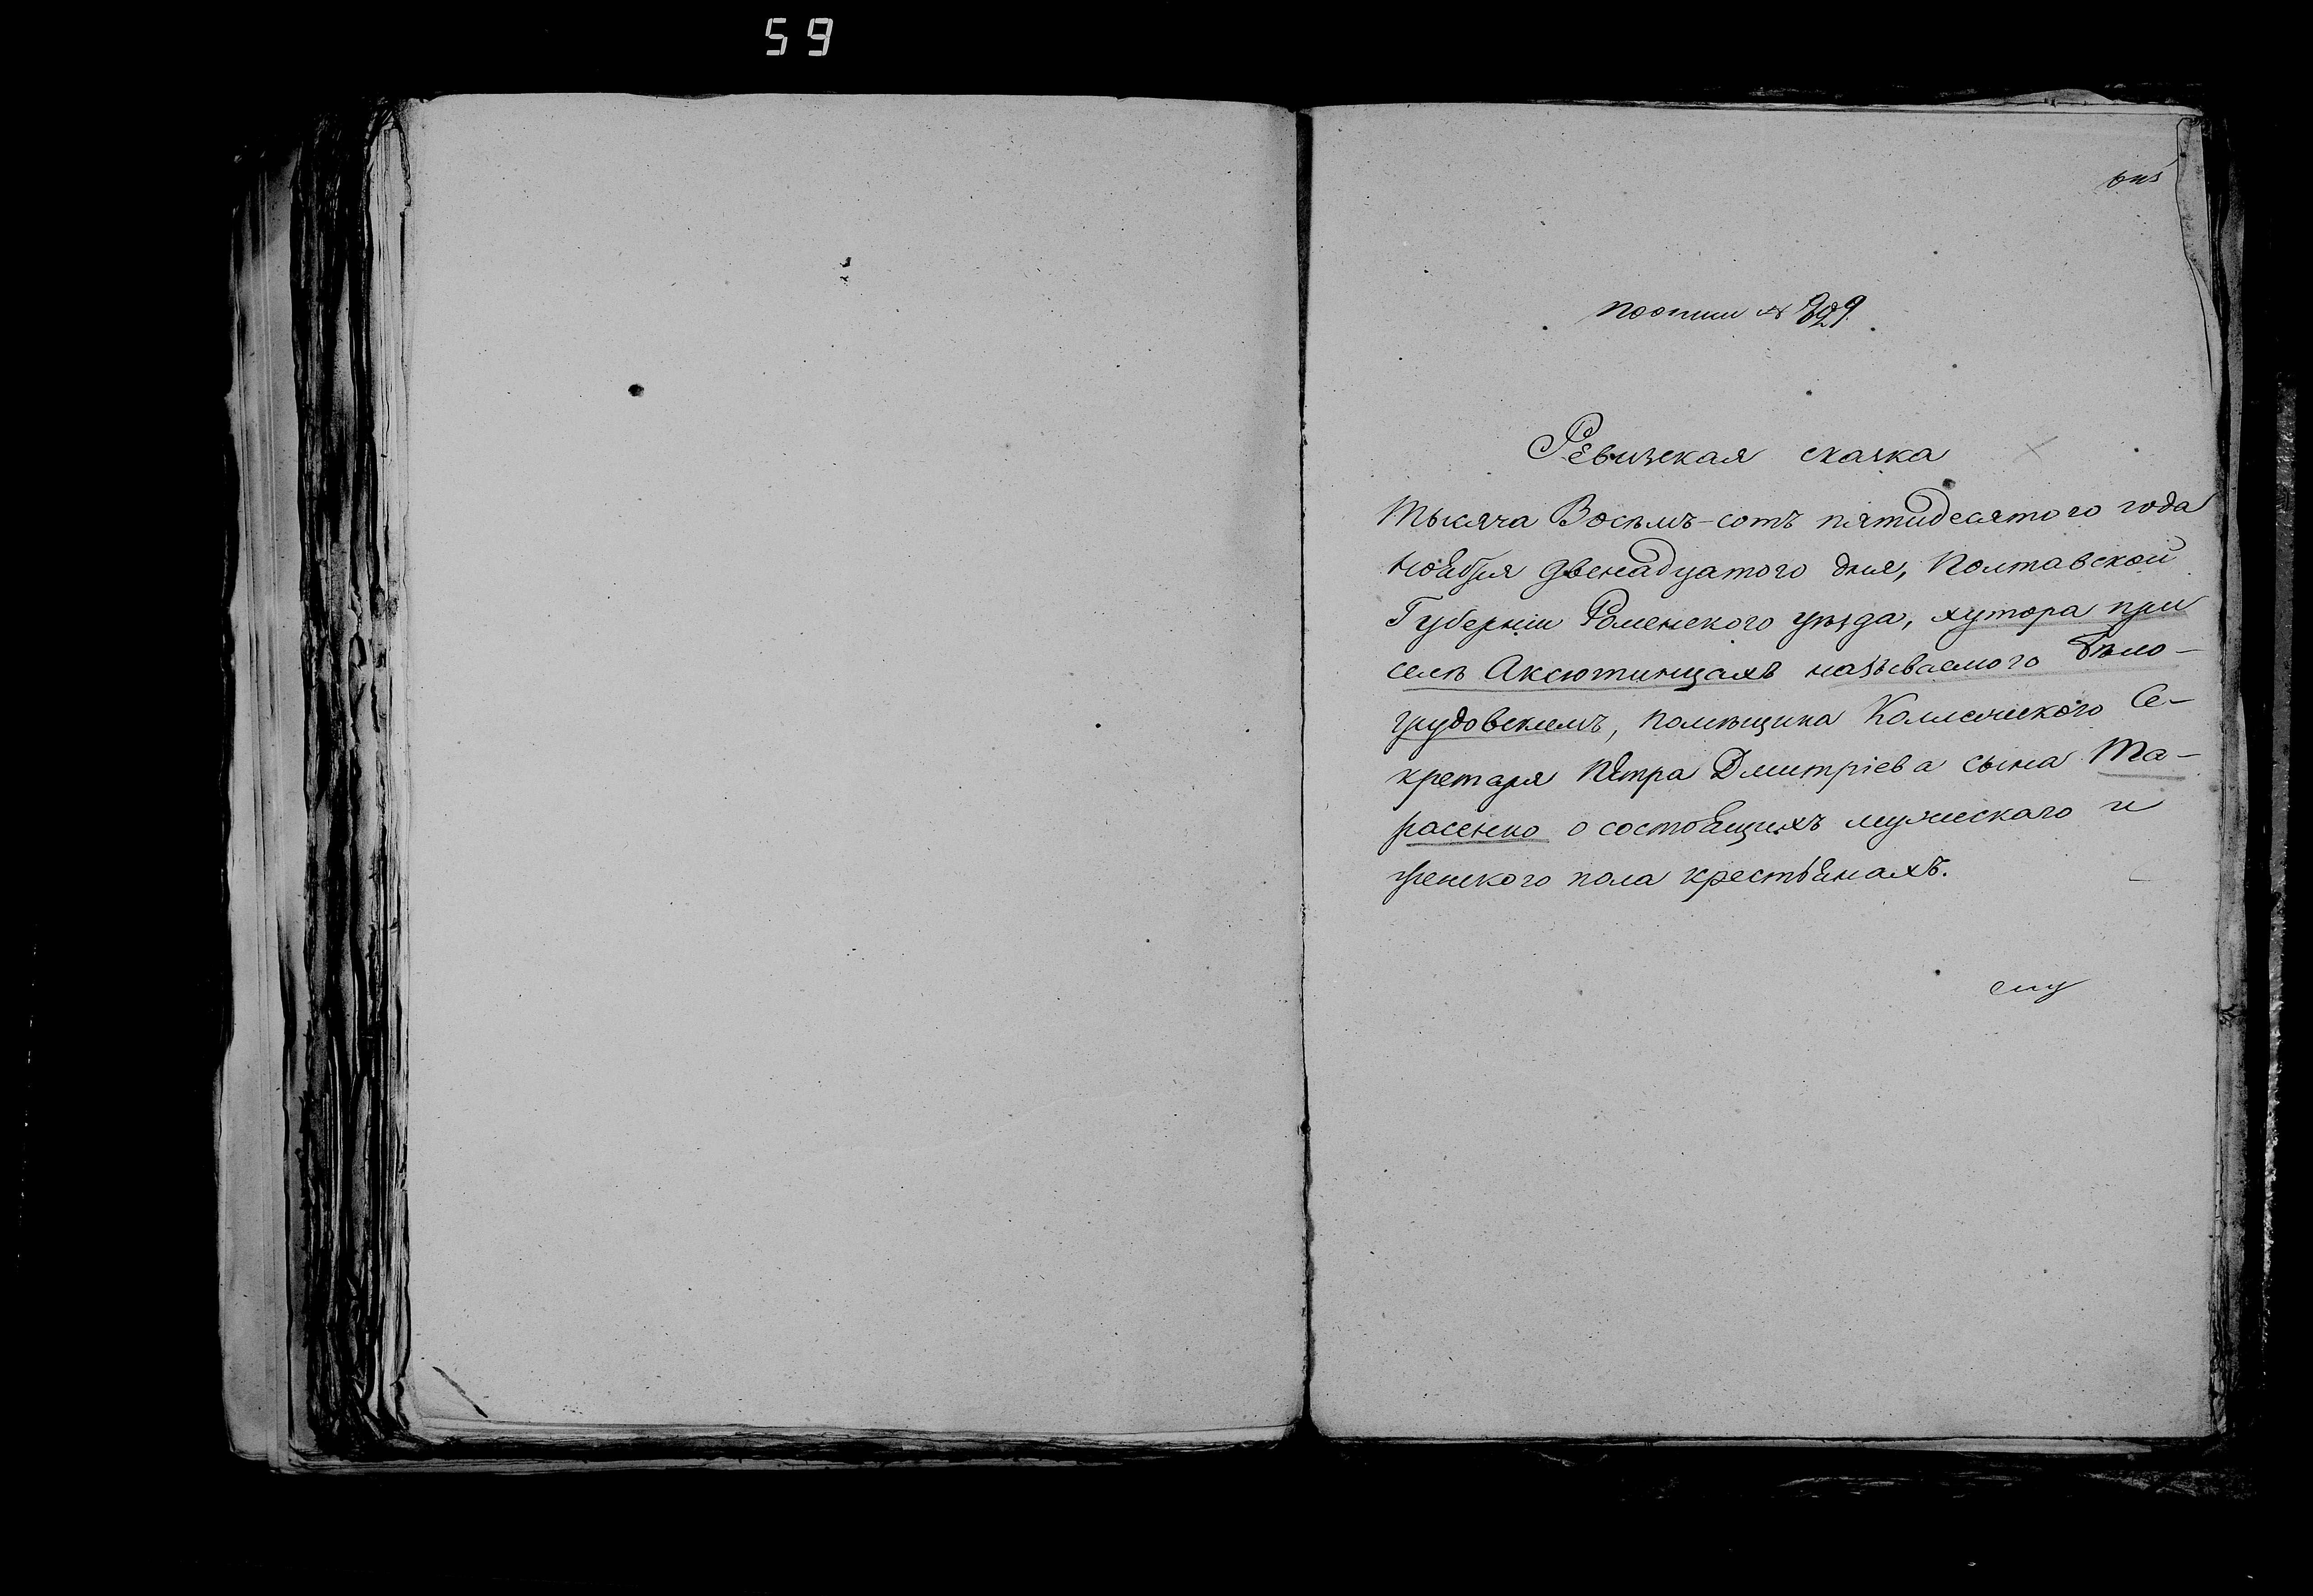 59
по описи № 929
Ревизская сказка
Тысяча Восемь-сотъ пятидесятого года
ноября двенадцатого дня, Полтавской
Губерніи Роменского уезда, хутора при
селѣ Аксютинцахъ называемого Бѣло-
грудовскемъ, помѣщика Коллежского Се-
кретаря Петра Дмитріева сына Та-
расенко о состоящихъ мужескаго и
женского пола крестьянахъ.